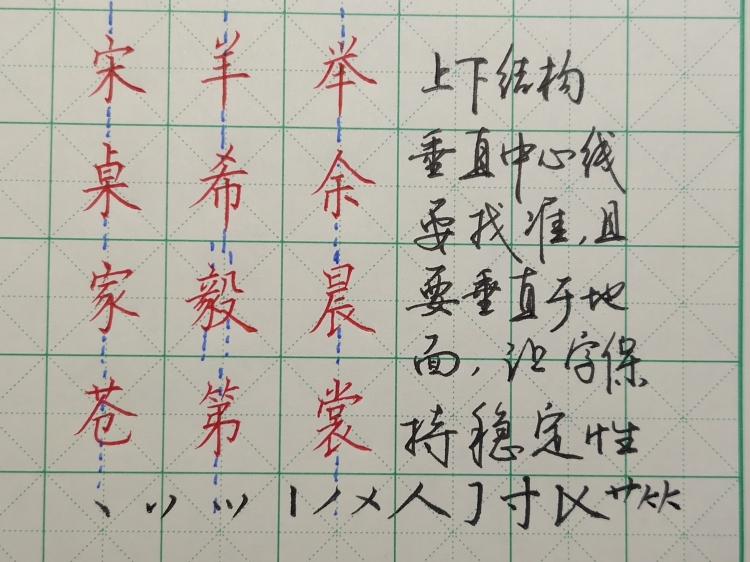 宋羊举 上下结构
桌希余 垂直中心线
要找准,且
家毅晨 要垂直于地
面,让字保
苍第裳 持稳定性
丶 丷 ⺌ 丨丿乂人亅寸